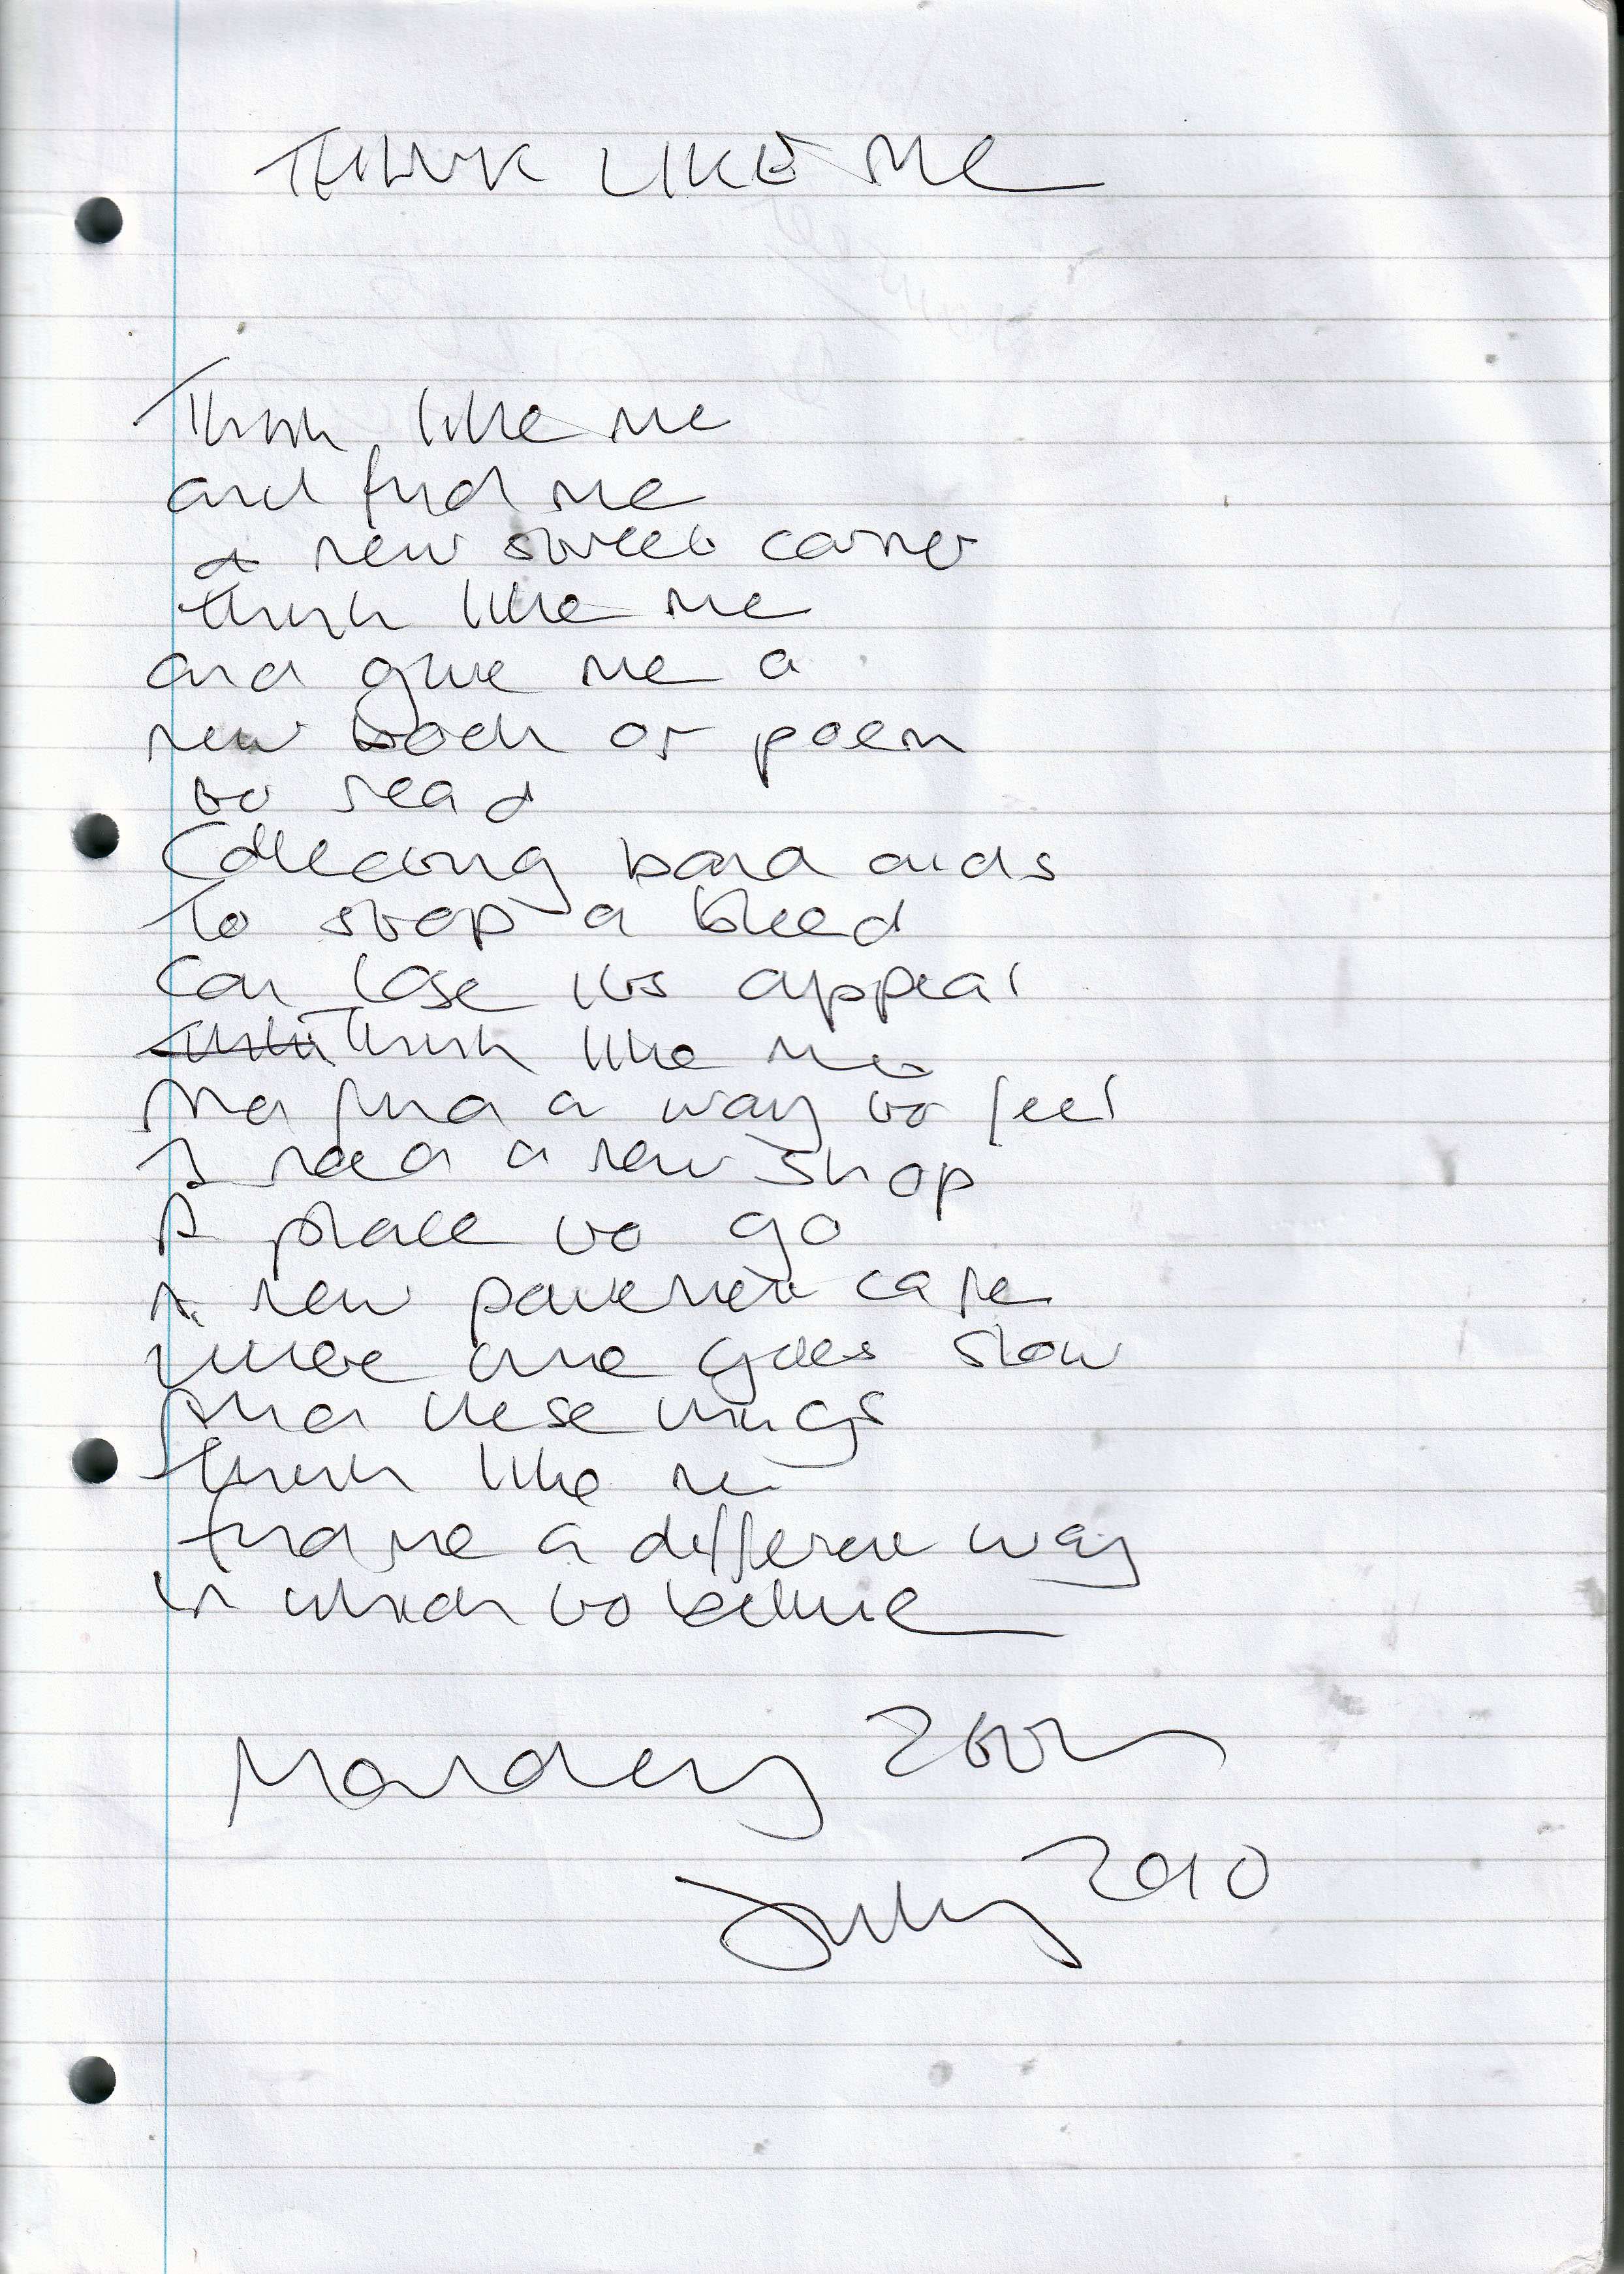 THINK LIKE ME
Think like me
and find me
a new street corner
think like me
and give me a
new book or poem
to read
Collecting band aids
To stop a bleed
Can lose its appeal
Think like me
And find a way to feel
I need a new shop
A place to go
A new pavement cafe
where time goes slow
And these things
think like me
find me a different way
in which to believe
Monday 26th
July 2010